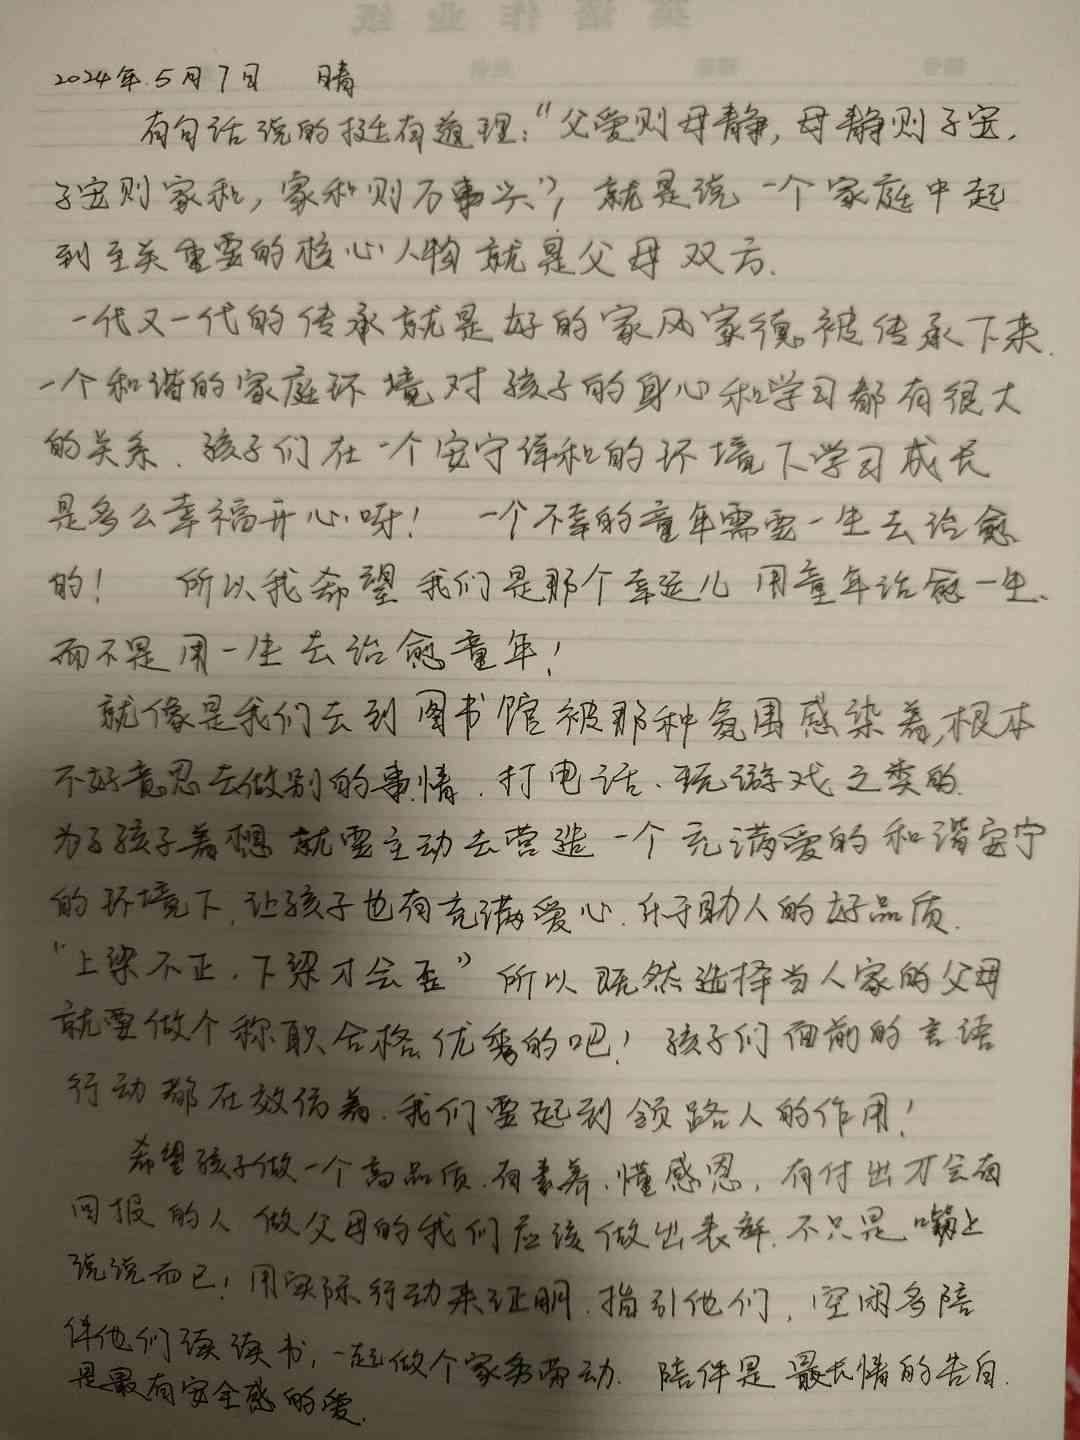 英语作业纸
2024年.5月7日 晴
有句话说的挺有道理:“父爱则母静,母静则子安.
子安则家和,家和则万事兴”,就是说一个家庭中起
到至关重要的核心人物就是父母双方.
一代又一代的传承就是好的家风家德。被传承下来.
一个和谐的家庭环境对孩子的身心和学习都有很大
的关系.孩子们在一个安宁详和的环境下学习成长
是多么幸福开心呀! 一个不幸的童年需要一生去治愈
的! 所以我希望我们是那个幸运儿用童年治愈一生.
而不是用一生去治愈童年!
就像是我们去到图书馆被那种氛围感染着,根本
不好意思去做别的事情.打电话、玩游戏之类的.
为了孩子着想就要主动去营造一个充满爱的和谐安宁
的环境下,让孩子也有充满爱心.乐于助人的好品质.
“上梁不正.下梁才会歪”所以既然选择当人家的父母
就要做个称职合格优秀的吧!孩子们面前的言语
行动都在效仿着.我们要起到领路人的作用!
希望孩子做一个高品质.有素养.懂感恩,有付出才会有
回报的人 做父母的我们应该做出表率.不只是嘴上
说说而已!用实际行动来证明.指引他们,空闲多陪
伴他们读读书,一起做个家务劳动.陪伴是最长情的告白.
是最有安全感的爱.